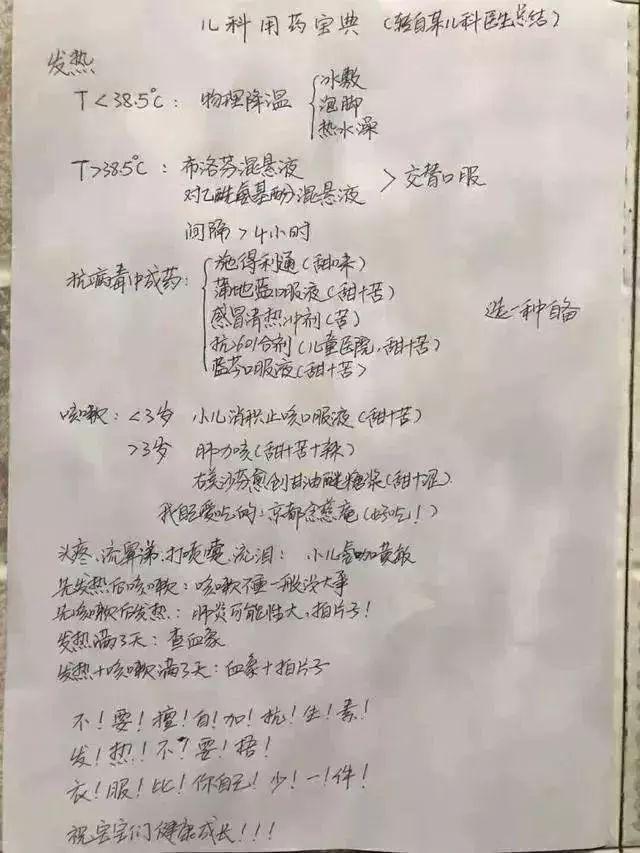 儿科用药宝典(转自某儿科医生总结)
发热
T<38.5℃: 物理降温 {冰敷
泡脚
热水澡
T>38.5℃: 布洛芬混悬液
对乙酰氨基酚混悬液 > 交替口服
间隔>4小时
抗病毒中成药: {施得利通(甜味)
蒲地蓝口服液(甜+苦)
感冒清热冲剂(苦) 选一种自备
抗601合剂(儿童医院,甜+苦)
蓝芩口服液(甜+苦)
咳嗽: <3岁 小儿消积止咳口服液(甜+苦)
>3岁 肺力咳(甜+苦+辣)
右美沙芬愈创甘油醚糖浆(甜+涩)
我自己爱吃的:京都念慈庵(好吃!)
头疼、流鼻涕、打喷嚏、流泪: 小儿氨咖黄敏
先发热后咳嗽: 咳嗽不重一般没大事
先咳嗽后发热: 肺炎可能性大,拍片子!
发热满3天: 查血象
发热+咳嗽满3天: 血象+拍片子
不!要!擅!自!加!抗!生!素!
发!热!不!要!捂!
衣!服!比!你自己!少!一!件!
祝宝宝们健康成长!!!